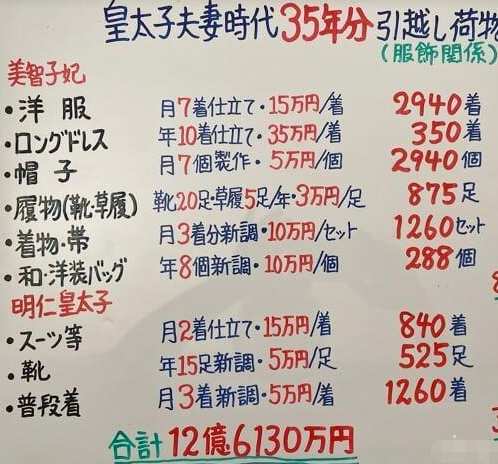 皇太子夫妻時代35年分引越し荷物
(服飾関係)
美智子妃
・洋服 月7着仕立て・15万円/着 2940着
・ロングドレス 年10着仕立て・35万円/着 350着
・帽子 月7個製作・5万円/個 2940個
・履物(靴・草履) 靴20足・草履5足/年・3万円/足 875足
・着物・帯 月3着分新調・10万円/セット 1260セット
・和・洋装バッグ 年8個新調・10万円/個 288個
明仁皇太子
・スーツ等 月2着仕立て・15万円/着 840着
・靴 年15足新調・5万円/足 525足
・普段着 月3着新調・5万円/着 1260着
合計12億6130万円